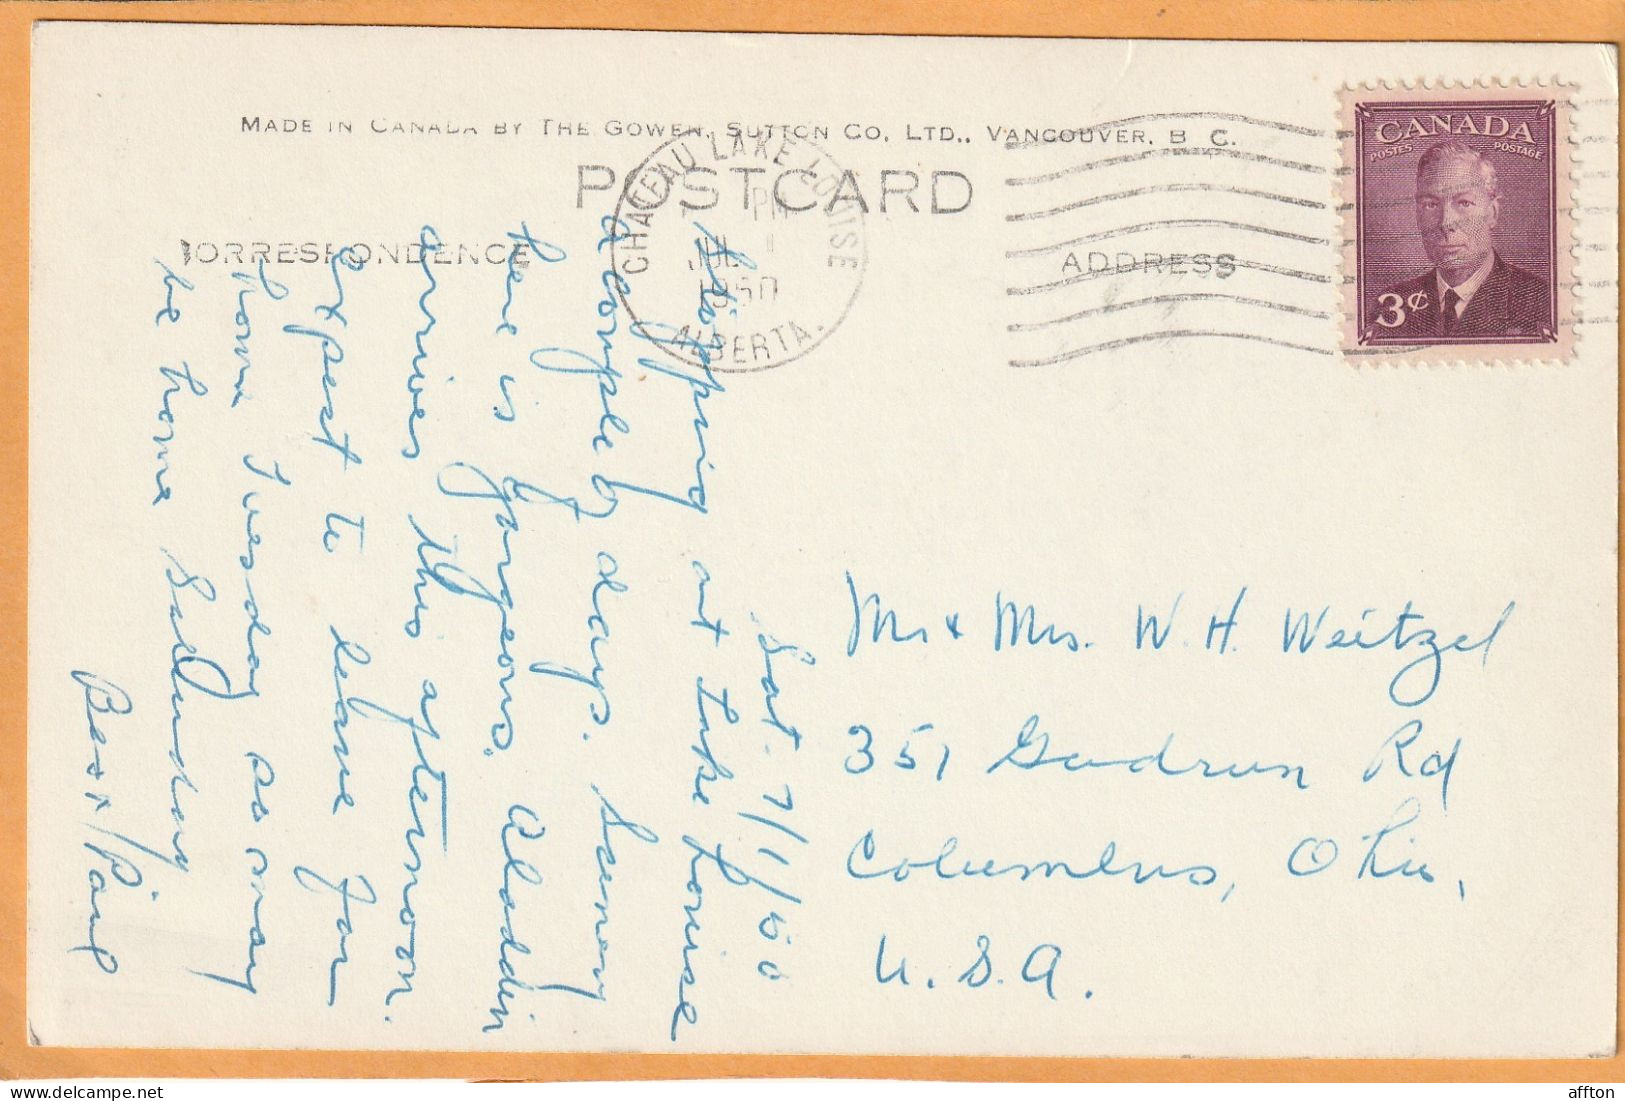 MADE IN CANADA BY THE GOWEN, SUTTON CO. LTD., VANCOUVER, B C.
POSTCARD
CORRESPONDENCE
ADDRESS
CHATEAU LAKE LOUISE
PM
JUL 1
1950
ALBERTA.
CANADA
POSTES POSTAGE
3¢
Sat. 7/1/50
Stopping at Lake Louise
a couple of days. Scenery
here is gorgeous. Aladdin
arrives this afternoon.
Expect to leave for
home Tuesday so may
be home Saturday
Bess + Paul
Mr + Mrs. W. H. Weitzel
351 Gudrun Rd
Columbus, Ohio,
U.S.A.
affton